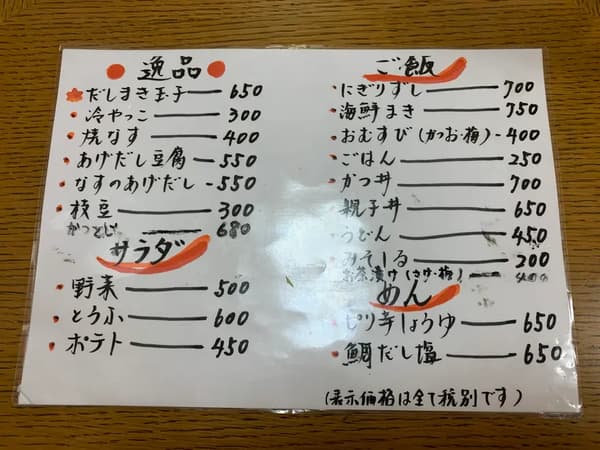 逸品
だしまき玉子 650
冷やっこ 300
焼なす 400
あげだし豆腐 550
なすのあげだし 550
枝豆 300
かつとじ 680
サラダ
野菜 500
とうふ 600
ポテト 450
ご飯
にぎりずし 700
海鮮まき 750
おむすび(かつお・梅) 400
ごはん 250
かつ丼 700
親子丼 650
うどん 450
みそしる 200
お茶漬け(さけ・梅) 400
めん
ピリ辛しょうゆ 650
鯛だし塩 650
(表示価格は全て税別です)